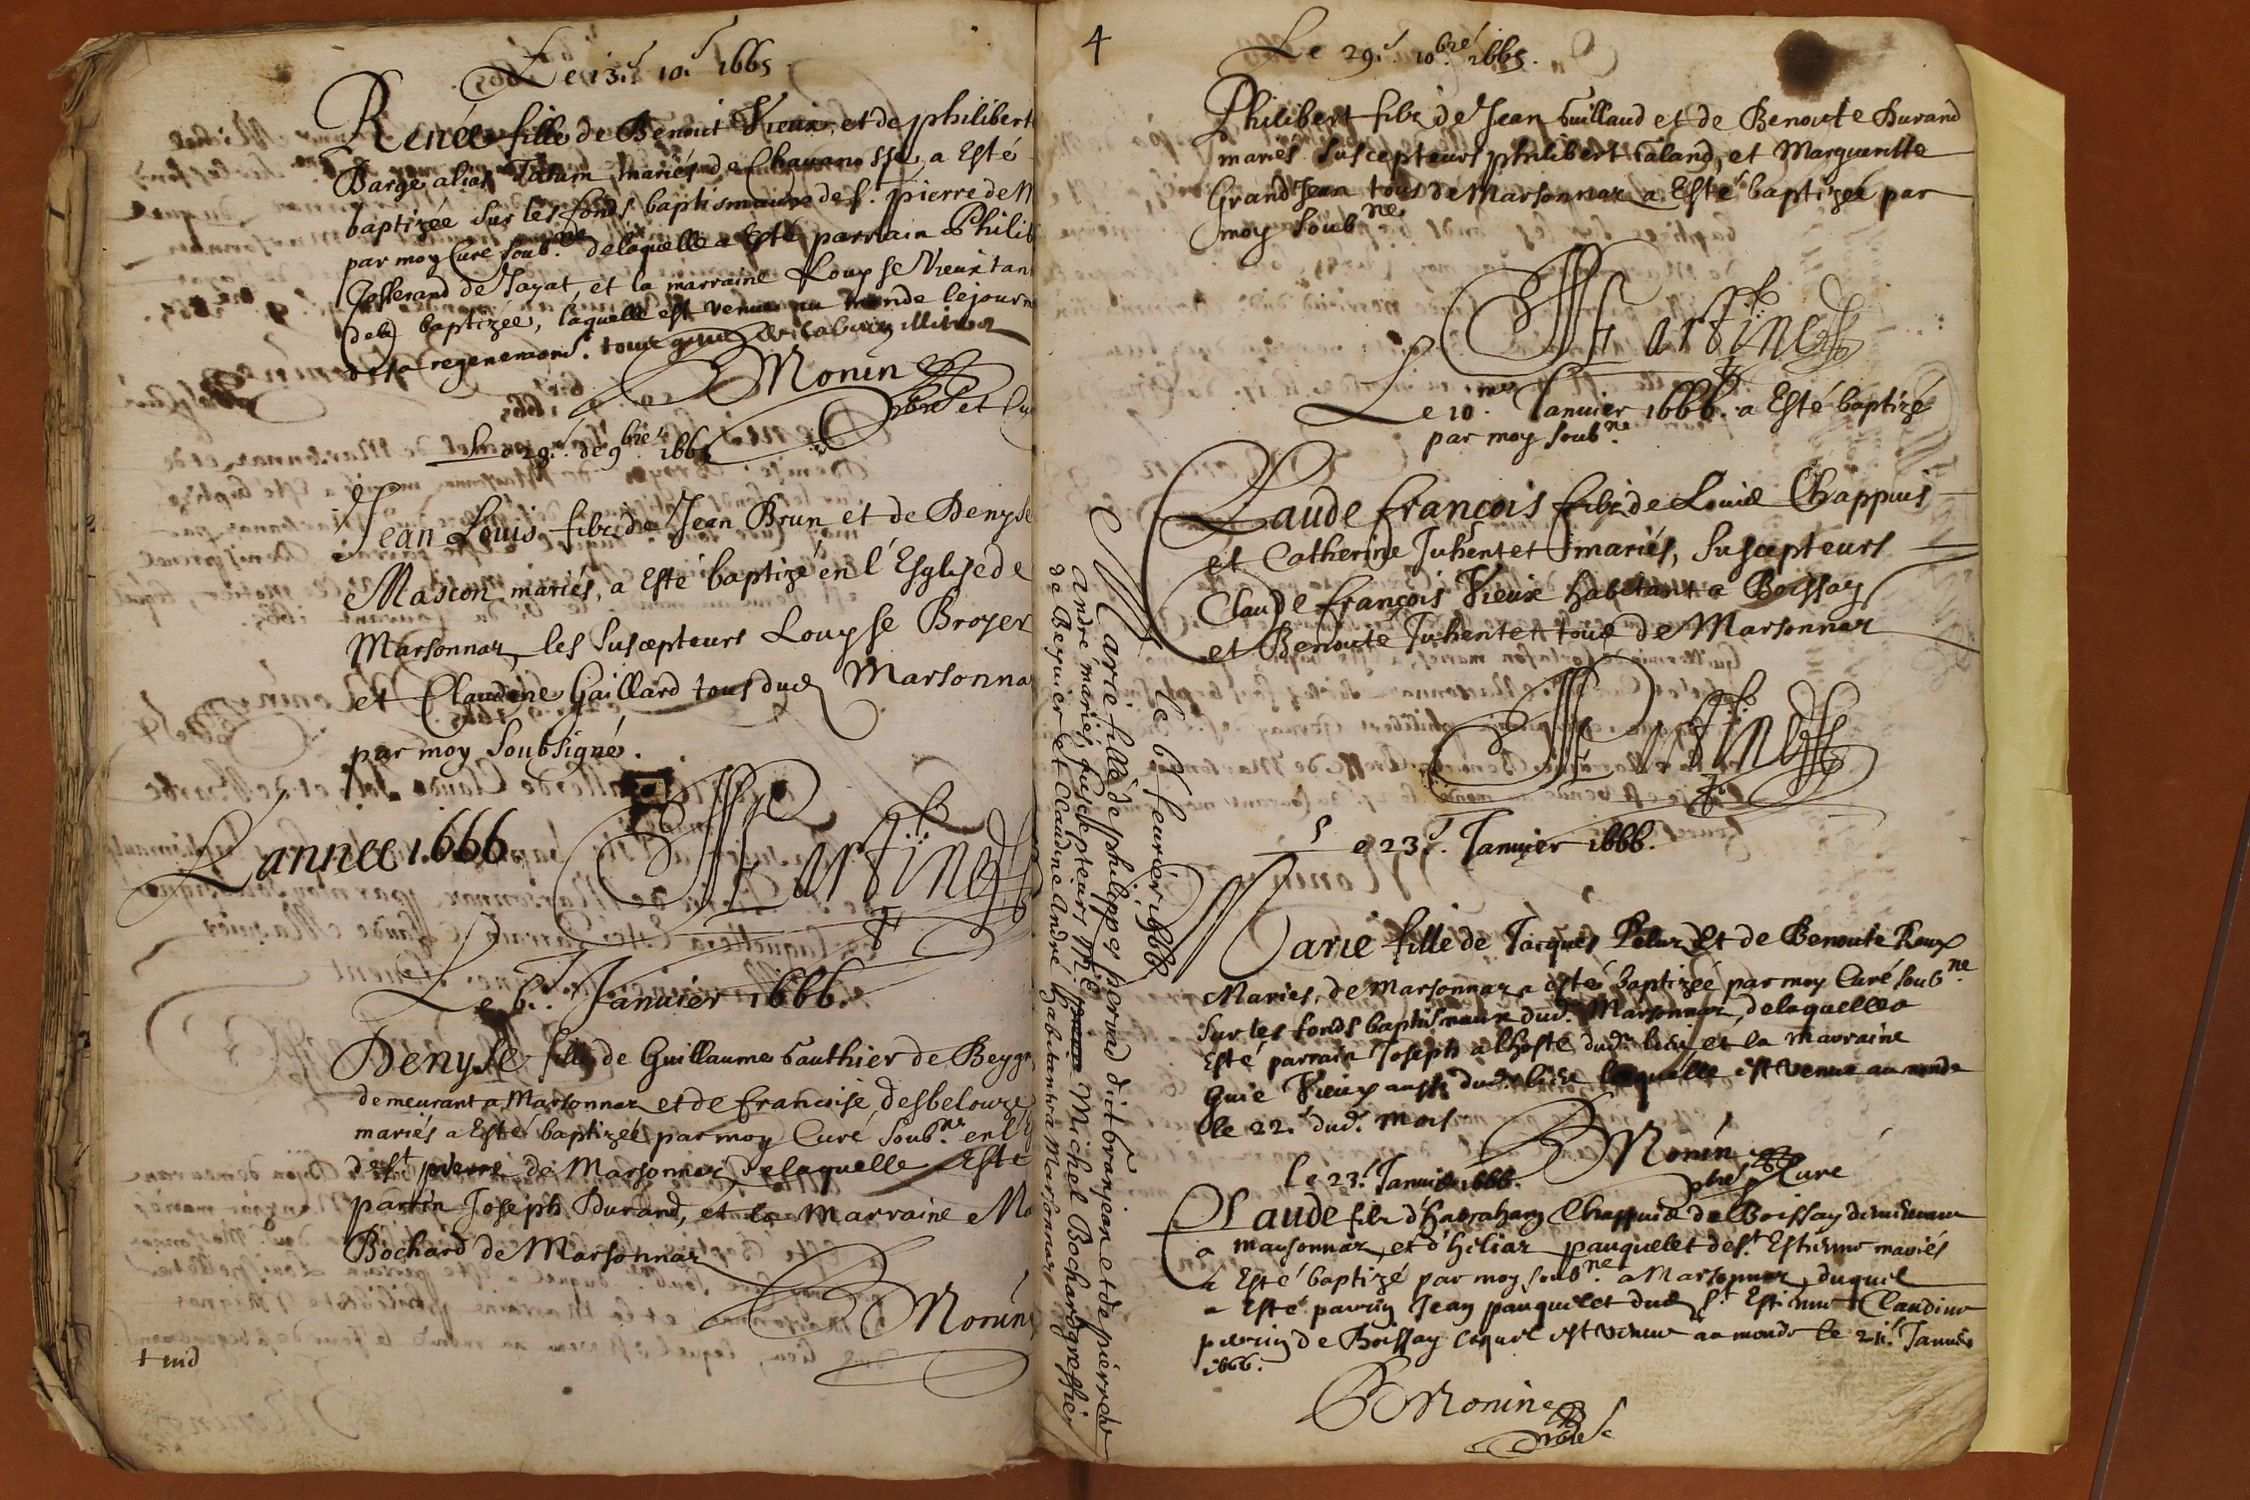 Le 13.e 10.e 1665
Renée fille de Benoict Vieux, et de philibert
Barge alias Tatum mariés de Chavanosse, a Esté
baptizée sur les fonds baptismaux de s. pierre de M
par moy Curé soub.né delaquelle a Esté parrain Philib
Josserand de Jayat, et la marraine Louyse Vieux tan
baptizée, laquelle est venue au monde le jour
Monin
pbre et Cu
Le 29.e de 9bre 1665
Jean Louis filz de Jean Brun et de Denyse
Mascon mariés, a Esté baptizé en l'Esglise de
Marsonnaz, les Suscepteurs Louyse Broyer
et Claudine Gaillard tous dud Marsonna
par moy Soubsigné.
Martine
L'année 1666
Le 6.e Janvier 1666.
Denyse fille de Guillaume Gauthier de Beygn
demeurant a Marsonnaz et de francoise desbelouze
mariés a Esté baptizée par moy Curé Soub.né en l'
de st pierre de Marsonnaz delaquelle a Esté
parrin Joseph Durand, et la Marraine Ma
Bochard de Marsonnaz
Monin
4
Le 29.e 10bre 1665.
Philibert filz de Jean Guillaud et de Benoicte Durand
mariés Suscepteurs philibert Galand, et Margueritte
Grand Jean tous de Marsonnaz a Esté baptizé par
moy Soub.né
Martine
Le 10.me Janvier 1666. a Esté baptizé
par moy Soub.né
Claude François filz de Louis Chappuis
et Catherine Juhentet mariés, Suscepteurs
Claude François Vieux habitant a Boissay
et Benoicte Juhentet tous de Marsonnaz
Martine
Le 23.e Janvier 1666.
Marie fille de Jacques Peluz et de Benoite Roux
Mariés, de Marsonnaz a esté baptizée par moy Curé Soub.né
sur les fonds baptismaux dud. Marsonnaz, delaquelle a
Esté parrain Joseph alhoste dud. lieu et la Marraine
Guie Vieux aussi dud. lieu laquelle est venue au monde
le 22.e dud. mois
Monin
pbre Curé
Le 23.e Janvier 1666.
Claude filz d'habraham Chappuis de Boissay
a marsonnaz, et d'heliaz pauquelet de s.t Estienne mariés
a Esté baptizé par moy soub.né a Marsonnaz, duquel
a Esté parrin Jean pauquelet dud s.t Estienne Claudine
perrin de Boissay lequel est venu au monde le 21.e Janvier
1666.
Monin
pbre
Le 6.e feurier 1666
Marie fille de philippes perrind dict branjean et de pierrette
andré mariés, suscepteurs M.re Michel Bochard greffier
de Beyvier et Claudine André habitant a Marsonnaz